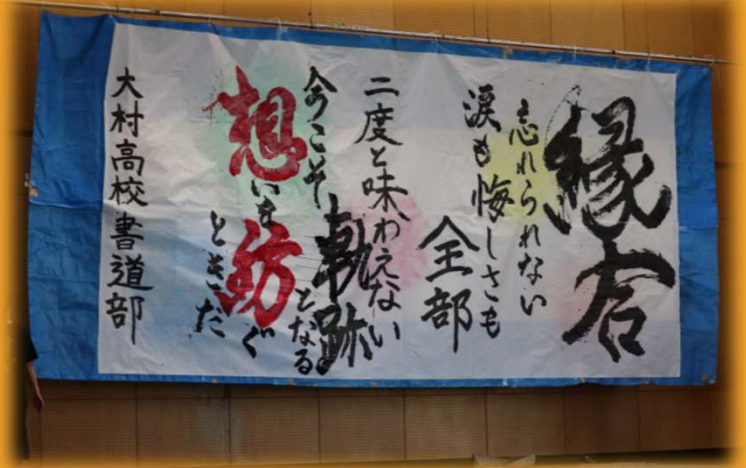 縁合
忘れられない
涙も悔しさも
全部
二度と味わえない
軌跡となる
今こそ
想いを紡ぐ
ときだ
大村高校書道部